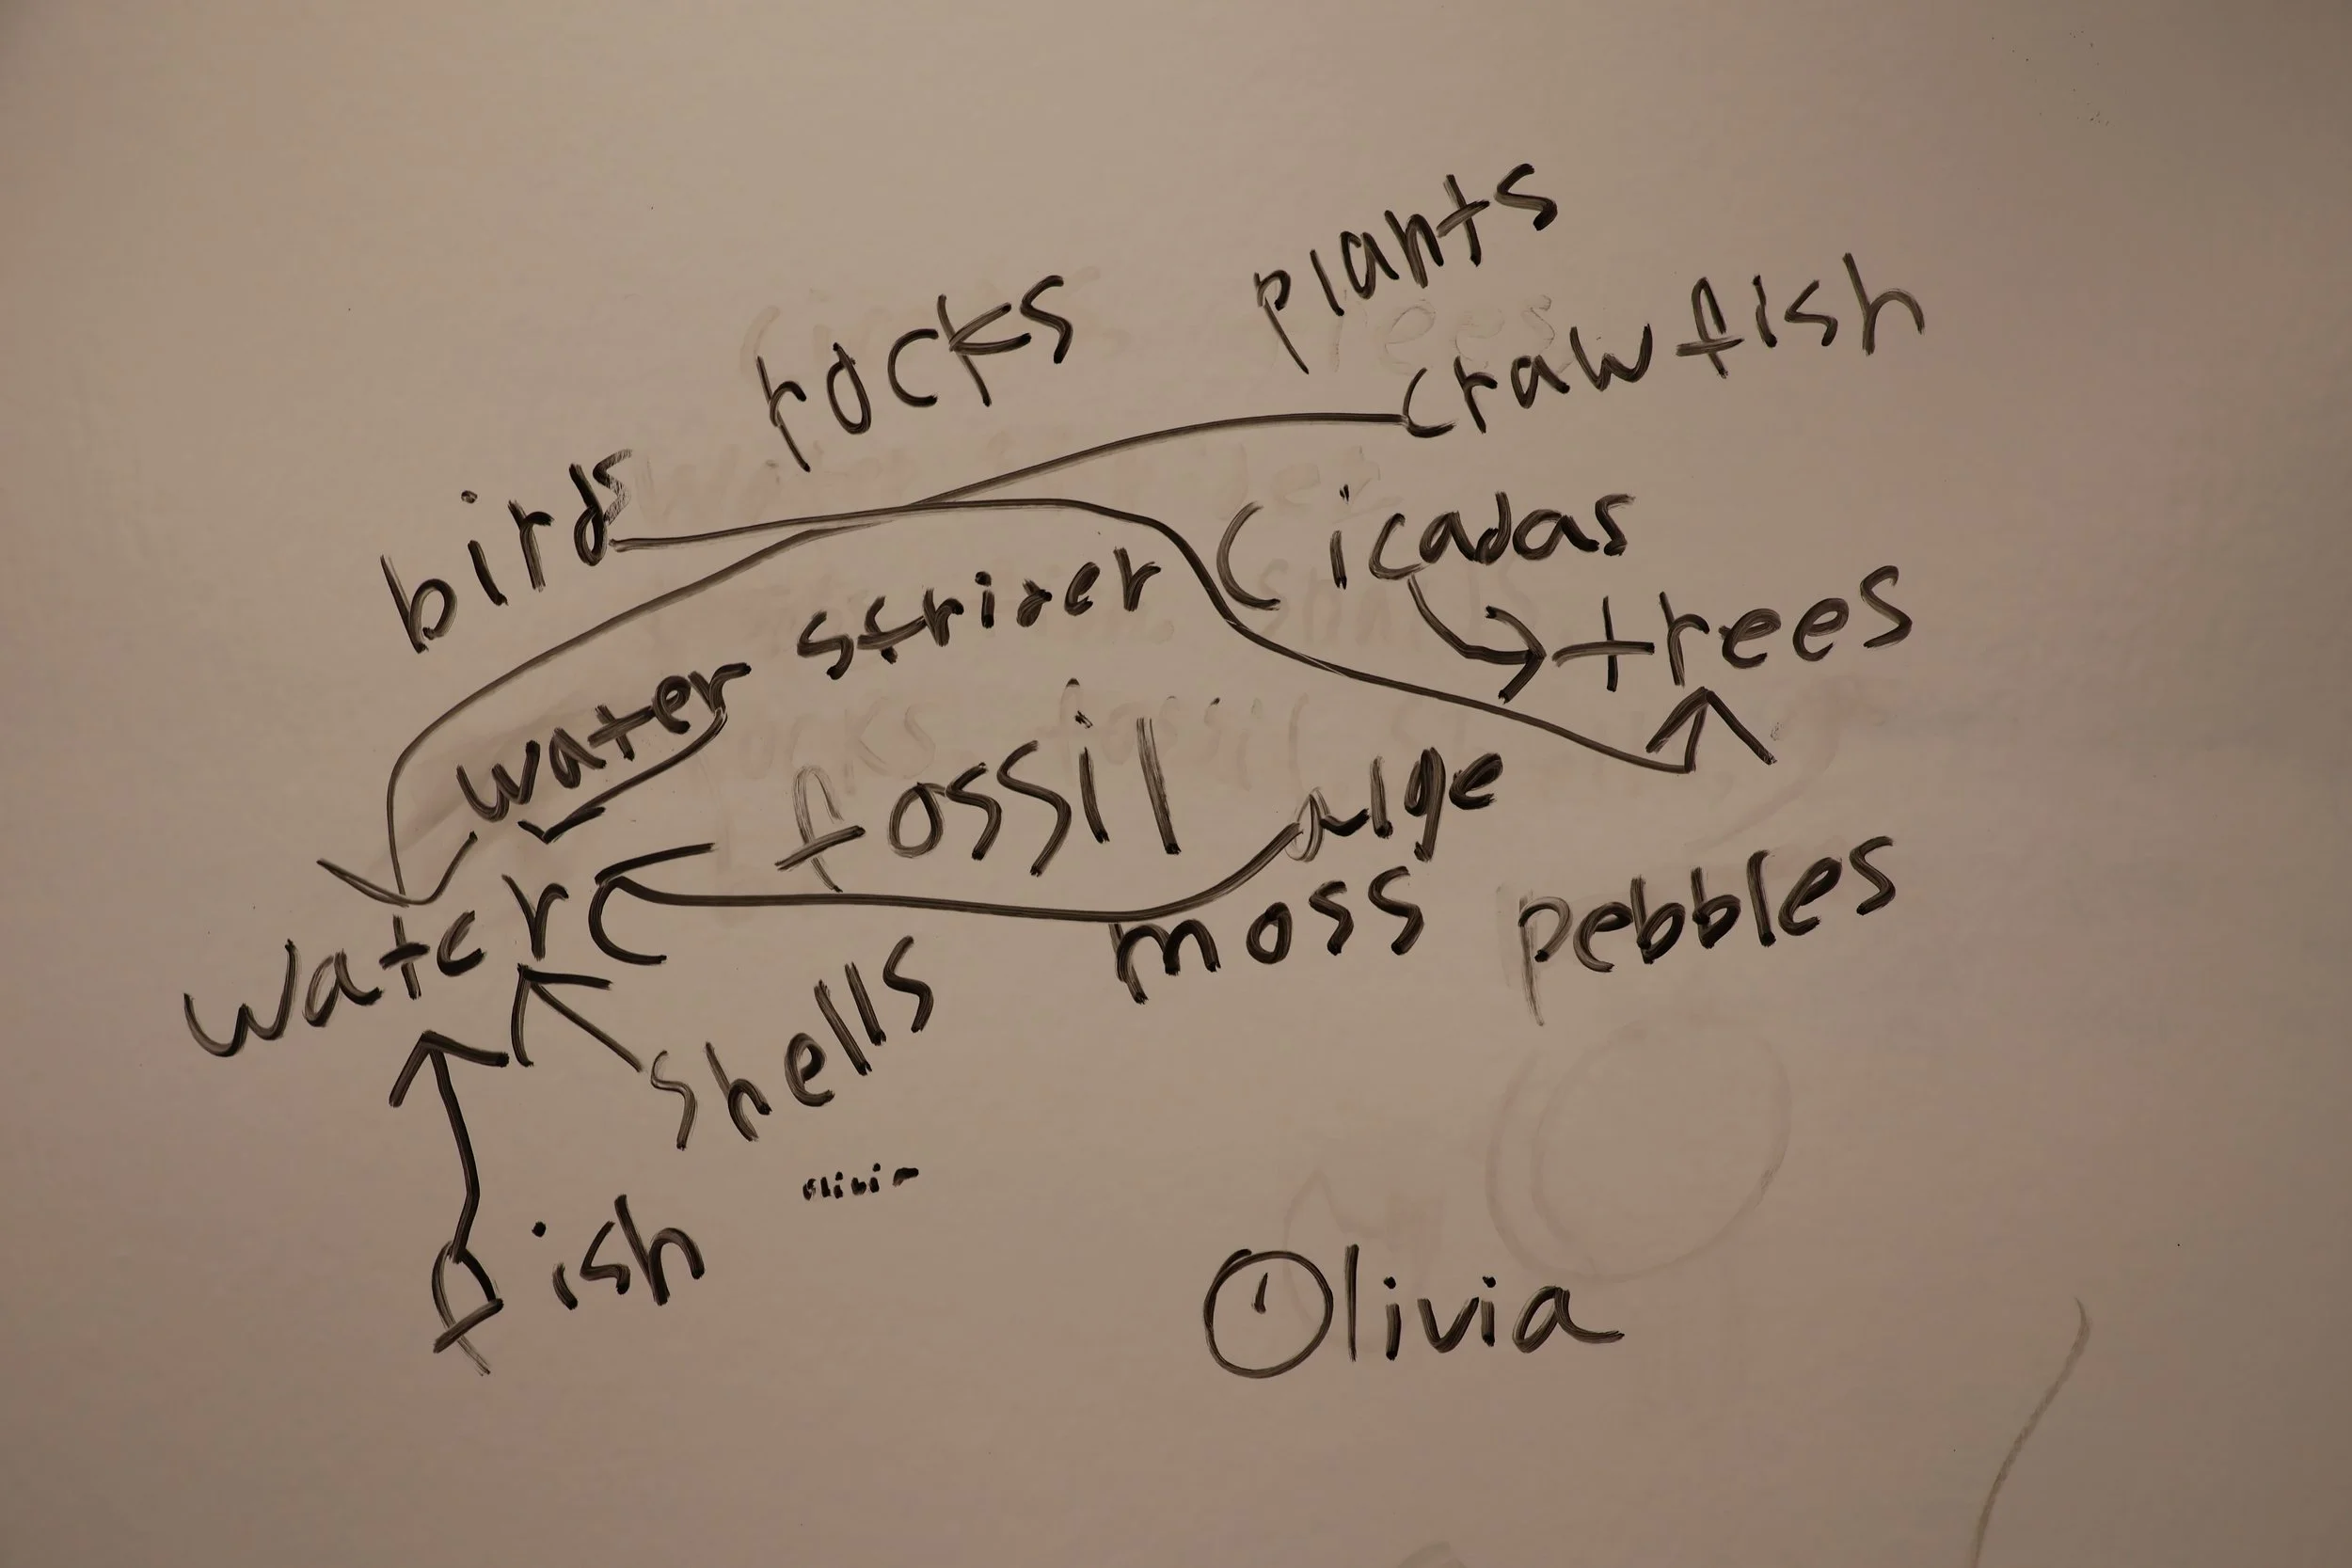 plants
rocks
crawfish
birds
cicadas
water strider
trees
fossil
alge
water
moss
pebbles
shells
olivia
fish
Olivia